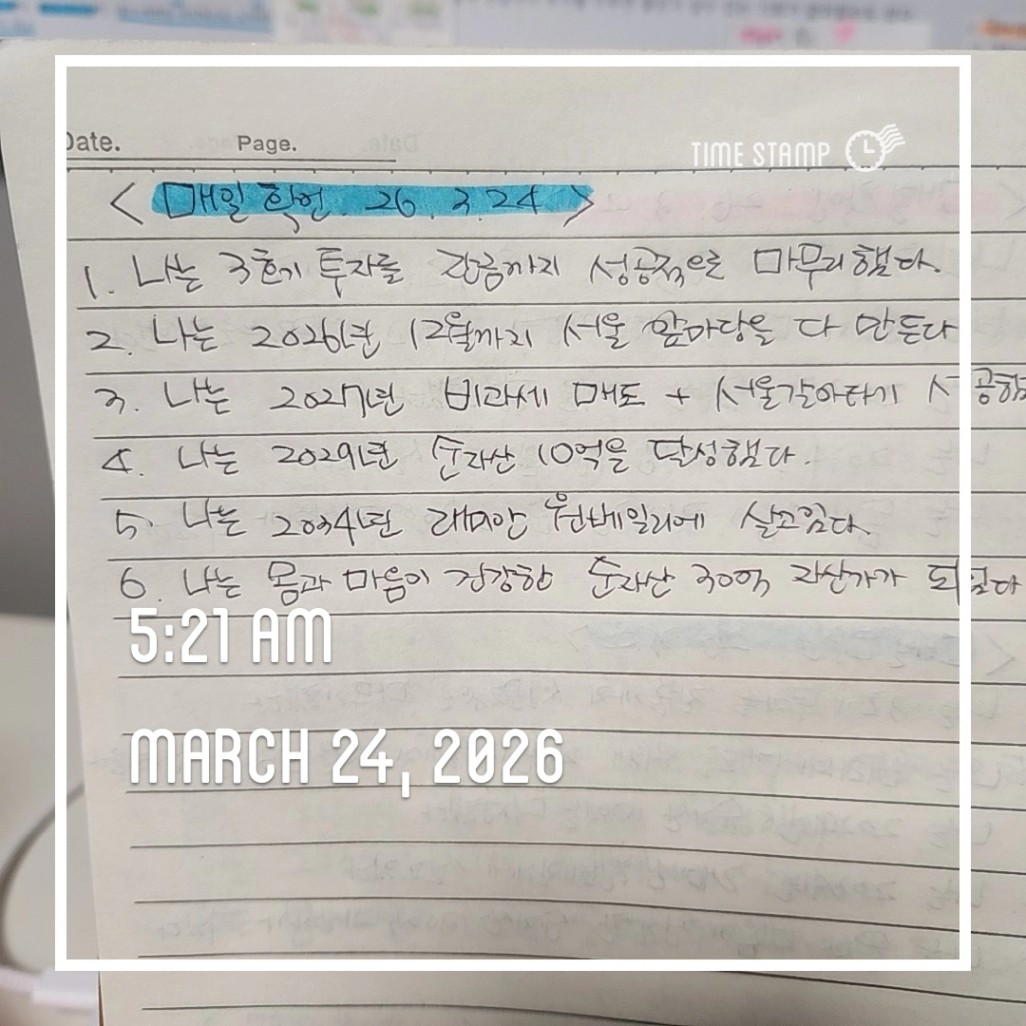 Date.
Page.
TIME STAMP
< 매일 확언. 26. 3. 24 >
1. 나는 3호기 투자를 잔금까지 성공적으로 마무리했다.
2. 나는 2026년 12월까지 서울 앞마당을 다 만든다
3. 나는 2027년 비과세 매도 + 서울갈아타기
4. 나는 2029년 순자산 10억을 달성했다.
5. 나는 2034년 래미안 원베일리에 살고있다.
6. 나는 몸과 마음이 건강한 순자산 30억 자산가가 되었다
5:21 AM
MARCH 24, 2026